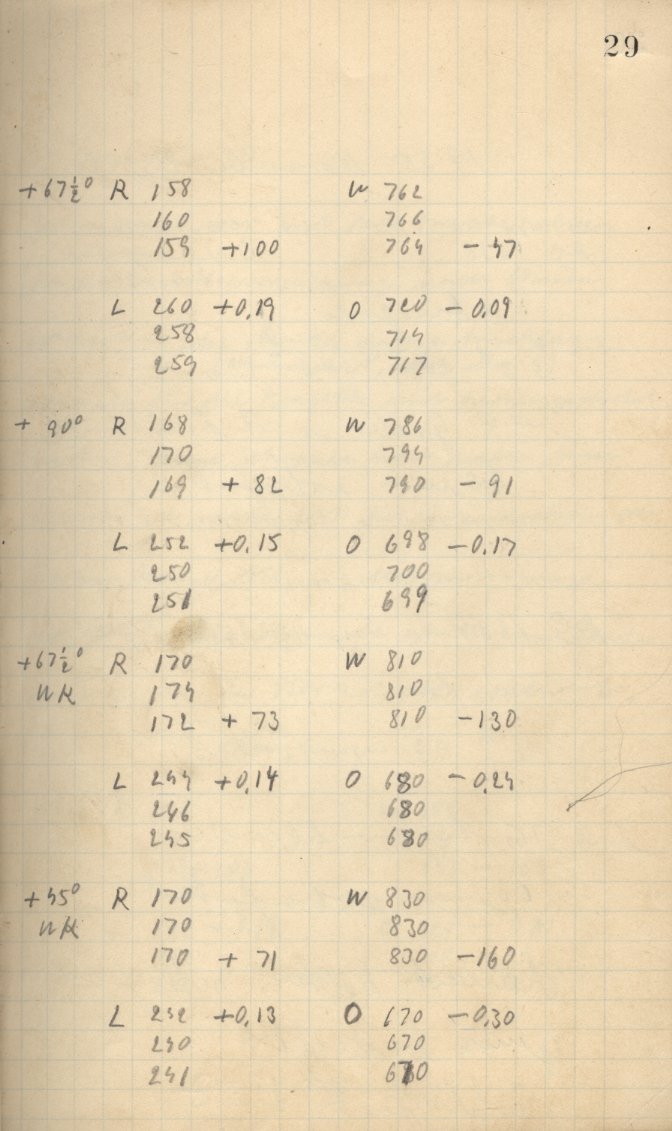 29
+67½° R 158 W 762
160 766
159 +100 764 - 47
L 260 +0,19 O 720 - 0,09
258 714
259 717
+ 90° R 168 W 786
170 794
169 + 82 790 - 91
L 252 +0,15 O 698 -0,17
250 700
251 699
+67½° R 170 W 810
WK 174 810
172 + 73 810 -130
L 244 +0,14 O 680 - 0,24
246 680
245 680
+45° R 170 W 830
WK 170 830
170 + 71 830 -160
L 242 +0,13 O 670 - 0,30
240 670
241 670